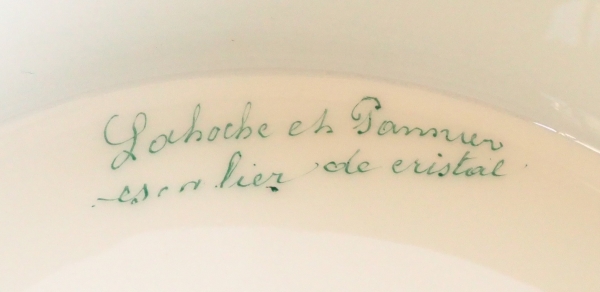 Lahoche et Pannier
escalier de cristal